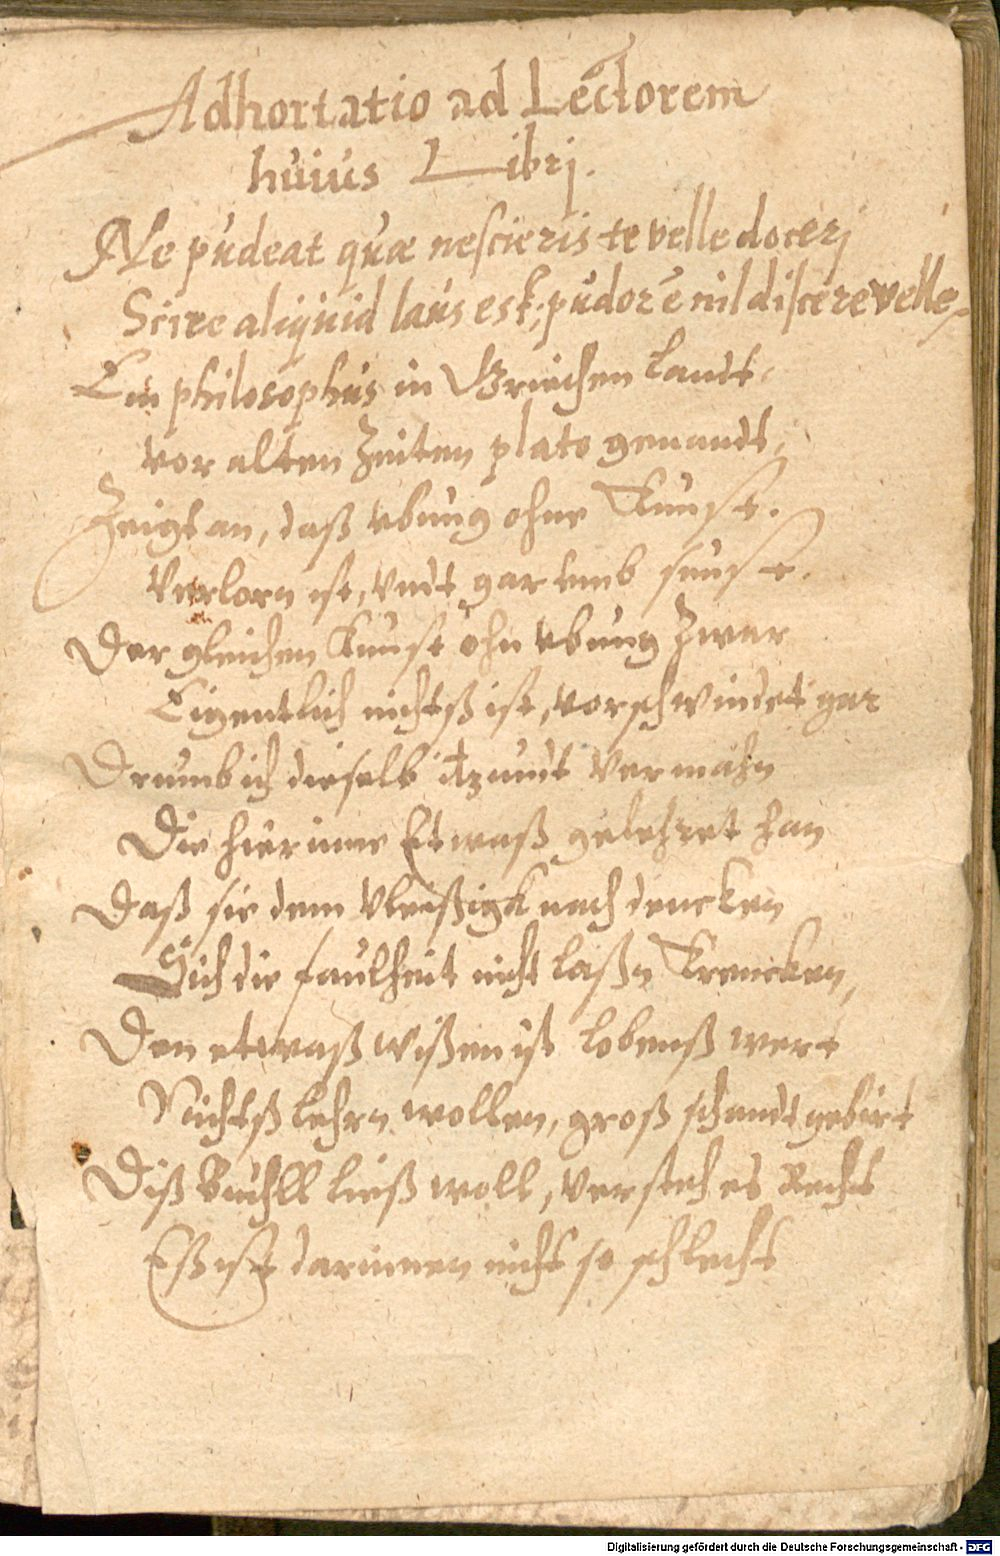 Adhortatio ad Lectorem
huius Librj.
Ne pudeat quæ nescieris te velle docerj
Scire aliquid laus est, pudor ē nil discere velle.
Ein philosophus in Griechen landt,
vor alten Zeiten plato genandt,
Zeigt an, daß vbung ohne Kunst.
Verlorn ist, vndt gar vmb sunst.
Der gleichen Kunst ohn vbung zwar
Eigentlich nichtß ist, vorschwindet gar
Drumb ich dieselb itzundt vermahn
Die hierinne Etwaß gelehret han
Daß sie dem vleißigk nach dencken
Sich die faulheit nicht laßn Krencken,
Den etwaß wißen ist lobenß wert
Nichtß lehrn wollen, groß schandt gebirt
Diß buchll ließ woll, versteh es Recht
Eß ist darinnen nicht so schlecht
Digitalisierung gefördert durch die Deutsche Forschungsgemeinschaft - DFG